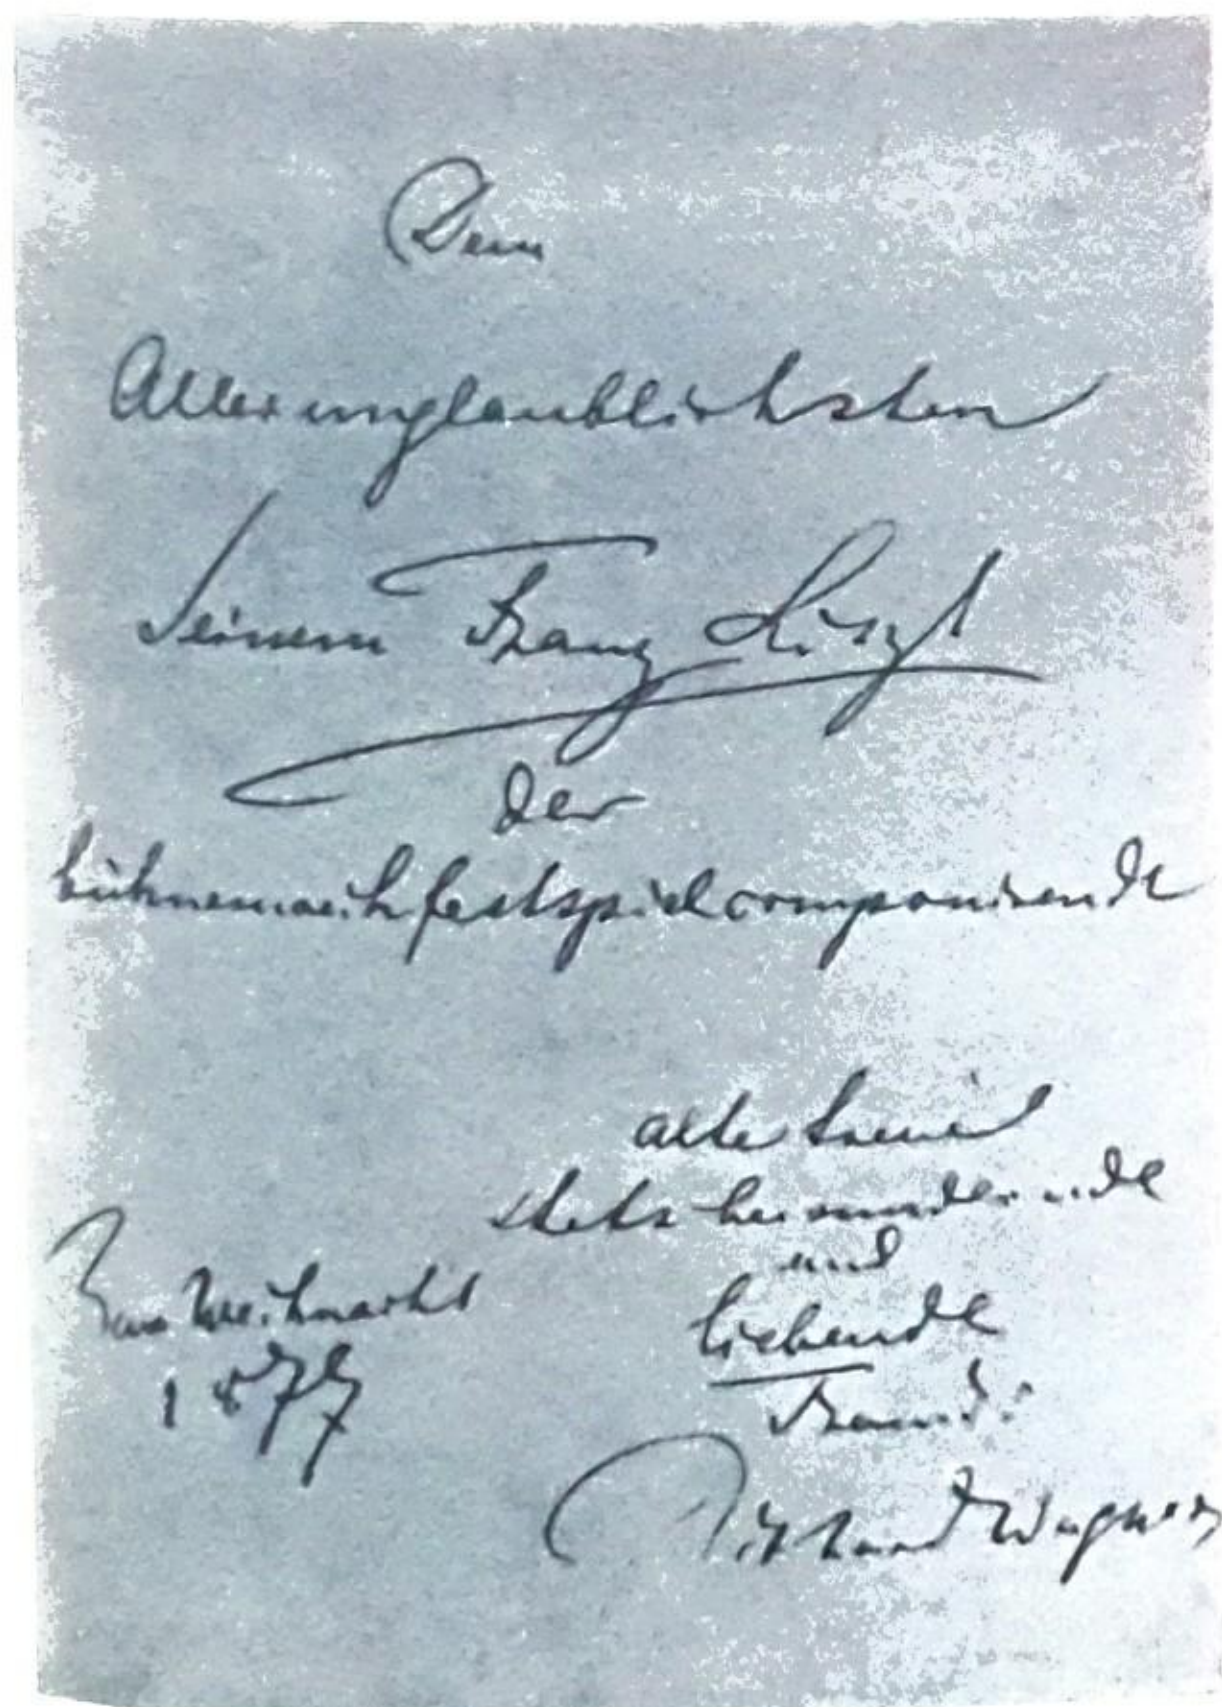 Dem
Allerunglaublichsten
Seinem Franz Liszt
der
bühnenweihfestspielcomponirende
alte
stets bewundernde
und
liebende
Freund:
Zur Weihnacht
1877
Richard Wagner